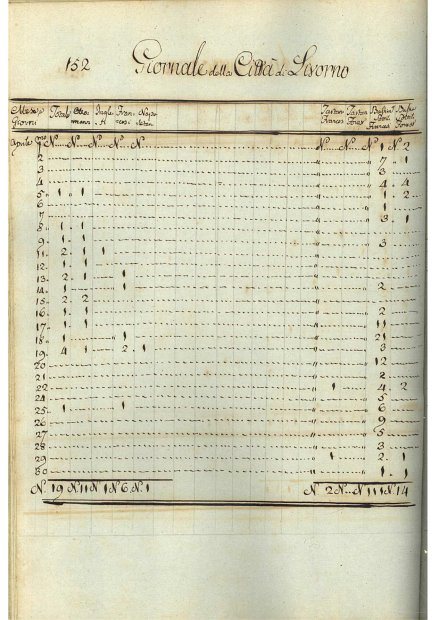 152 Giornale della Città di Livorno
Mese e Giorni Totale Otto-mana Ingle- Fran-cesi Napo-letan Tartan Frances Tartan
Aprile 1 N N N N N N N N 1 N 2
2 " 7 1
3 " 3
4 " 4 4
5 1 1 " 1 2
6 "
7 " 3 1
8 1 1 "
9 1 1 " 3
11 2 1 1 "
12 1 1 "
13 2 1 1 "
14 1 1 " 2
15 2 2 "
16 1 1 " 2
17 1 1 " 11
18 1 1 " 21
19 4 1 2 1 " 3
20 " 12
21 " 2
22 " 1 4 2
24 " 5
25 1 1 " 6
26 " 9
27 " 5
28 " 3
29 " 1 2 1
30 " 1 1
N. 19 N. 11 N. 1 N. 6 N. 1 N. 2 N. N. 111 N. 14